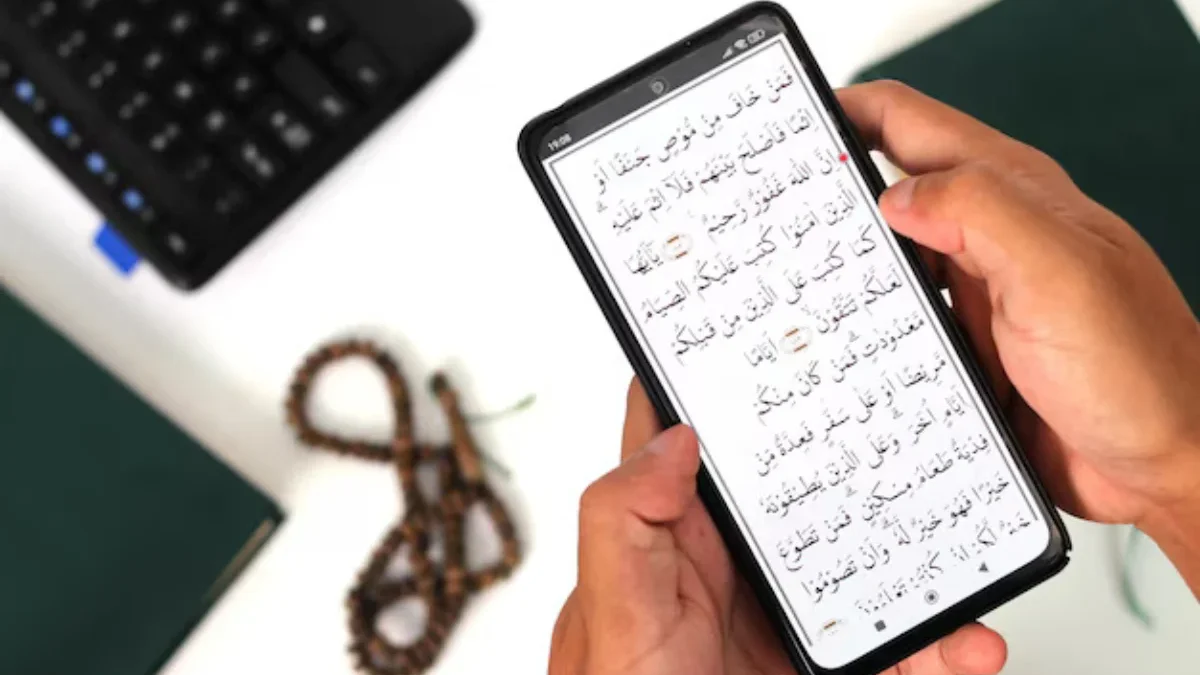 19:08
فَمَنْ خَافَ مِنْ مُّوْصٍ جَنَفًا اَوْ
اِثْمًا فَاَصْلَحَ بَيْنَهُمْ فَلَآ اِثْمَ عَلَيْهِ ۗ
اِنَّ اللّٰهَ غَفُوْرٌ رَّحِيْمٌ يٰٓاَيُّهَا
الَّذِيْنَ اٰمَنُوْا كُتِبَ عَلَيْكُمُ الصِّيَامُ
كَمَا كُتِبَ عَلَى الَّذِيْنَ مِنْ قَبْلِكُمْ
لَعَلَّكُمْ تَتَّقُوْنَۙ اَيَّامًا
مَّعْدُوْدٰتٍۗ فَمَنْ كَانَ مِنْكُمْ
مَّرِيْضًا اَوْ عَلٰى سَفَرٍ فَعِدَّةٌ مِّنْ
اَيَّامٍ اُخَرَ ۗ وَعَلَى الَّذِيْنَ يُطِيْقُوْنَهٗ
فِدْيَةٌ طَعَامُ مِسْكِيْنٍۗ فَمَنْ تَطَوَّعَ
خَيْرًا فَهُوَ خَيْرٌ لَّهٗ ۗ وَاَنْ تَصُوْمُوْا
خَيْرٌ لَّكُمْ اِنْ كُنْتُمْ تَعْلَمُوْنَ